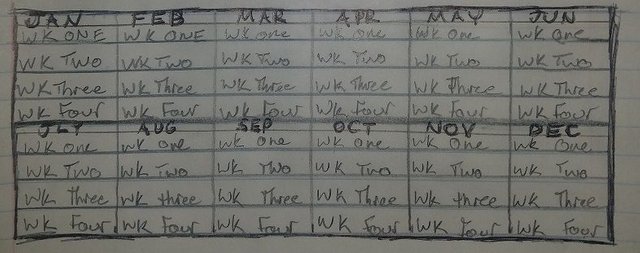 JAN FEB MAR APR MAY JUN
WK ONE WK ONE WK one WK one WK One WK One
WK Two WK Two WK Two WK Two WK Two WK Two
WK Three WK Three WK Three WK Three WK Three WK Three
WK Four WK Four WK Four WK Four WK Four WK Four
JLY AUG SEP OCT NOV DEC
WK One WK One WK One WK One WK One WK One
WK Two WK Two WK Two WK Two WK Two WK Two
WK Three WK three WK Three WK Three WK three WK Three
WK Four WK Four WK Four WK Four WK Four WK Four